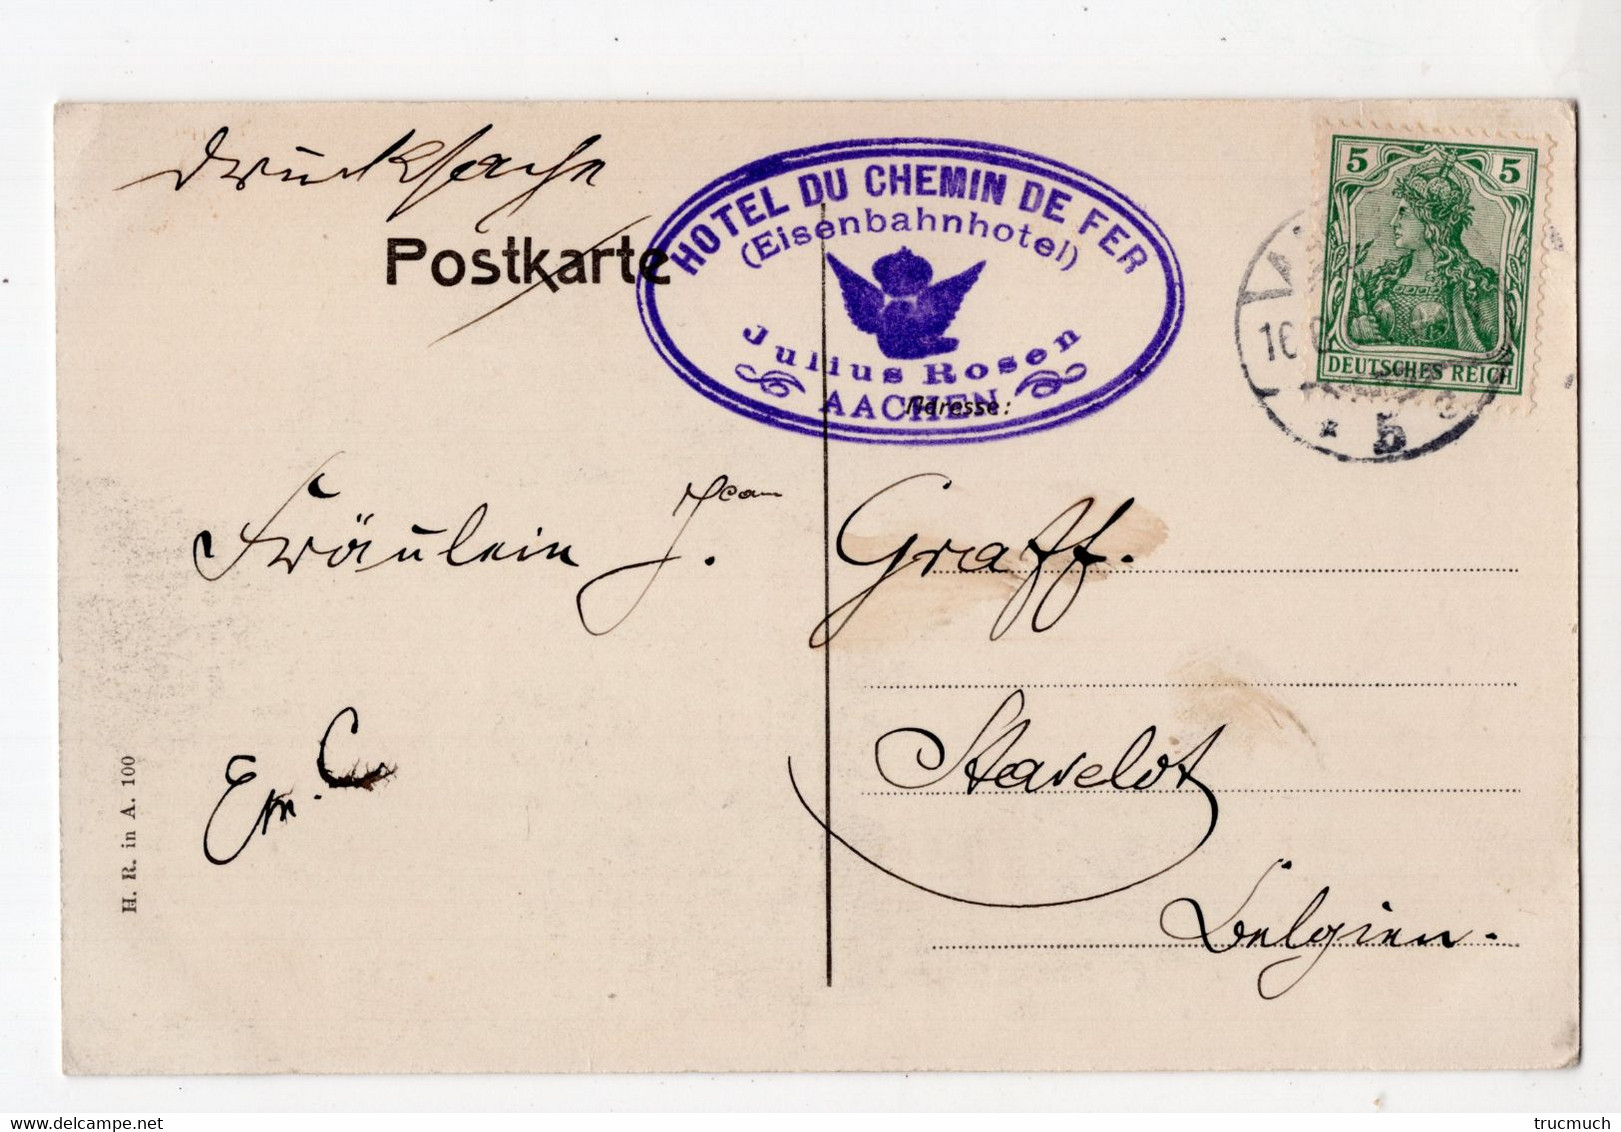 Drucksache
Postkarte
HOTEL DU CHEMIN DE FER
(Eisenbahnhotel)
Julius Rosen
AACHEN
Adresse:
5 5
DEUTSCHES REICH
16
* 5
Fräulein J. Graff.
Stavelot
Belgien.
Em. C
H. R. in A. 100
delcampe.net
trucmuch